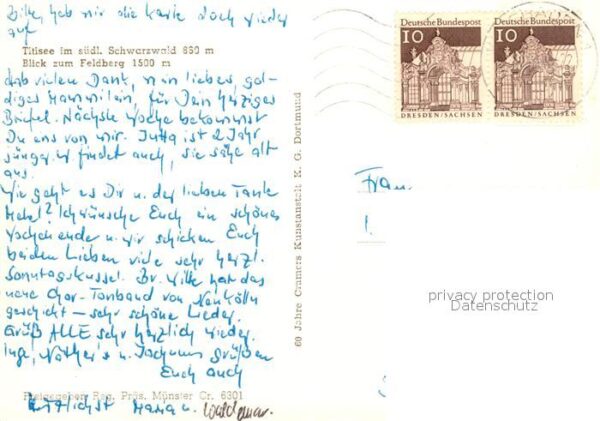 Bitte heb mir die Karte doch wieder
auf
Titisee im südl. Schwarzwald 860 m
Blick zum Feldberg 1500 m
Hab vielen Dank, mein liebes, gol-
diges Mammilein, für Dein herziges
Briefel. Nächste Woche bekommst
Du eins von mir. Jutta ist 2 Jahr
jünger u. findet auch, sie sähe alt
aus.
Wie geht es Dir u. der lieben Tante
? Ich wünsche Euch ein schönes
Wochenende u. wir schicken Euch
beiden Lieben viele sehr herzl.
Sonntagskussel. Br. Wilke hat das
neue Chor-Tonband von Neukölln
geschickt - sehr schöne Lieder.
Grüß ALLE sehr herzlich wieder.
Inge, u. Jochums grüßen
Euch auch
Freigegeben Reg. Präs. Münster Cr. 6301
herzlichst Maria u. Waldemar.
60 Jahre Cramers Kunstanstalt K. G. Dortmund
Deutsche Bundespost Deutsche Bundespost
10 10
DRESDEN/SACHSEN DRESDEN/SACHSEN
Frau
privacy protection
Datenschutz